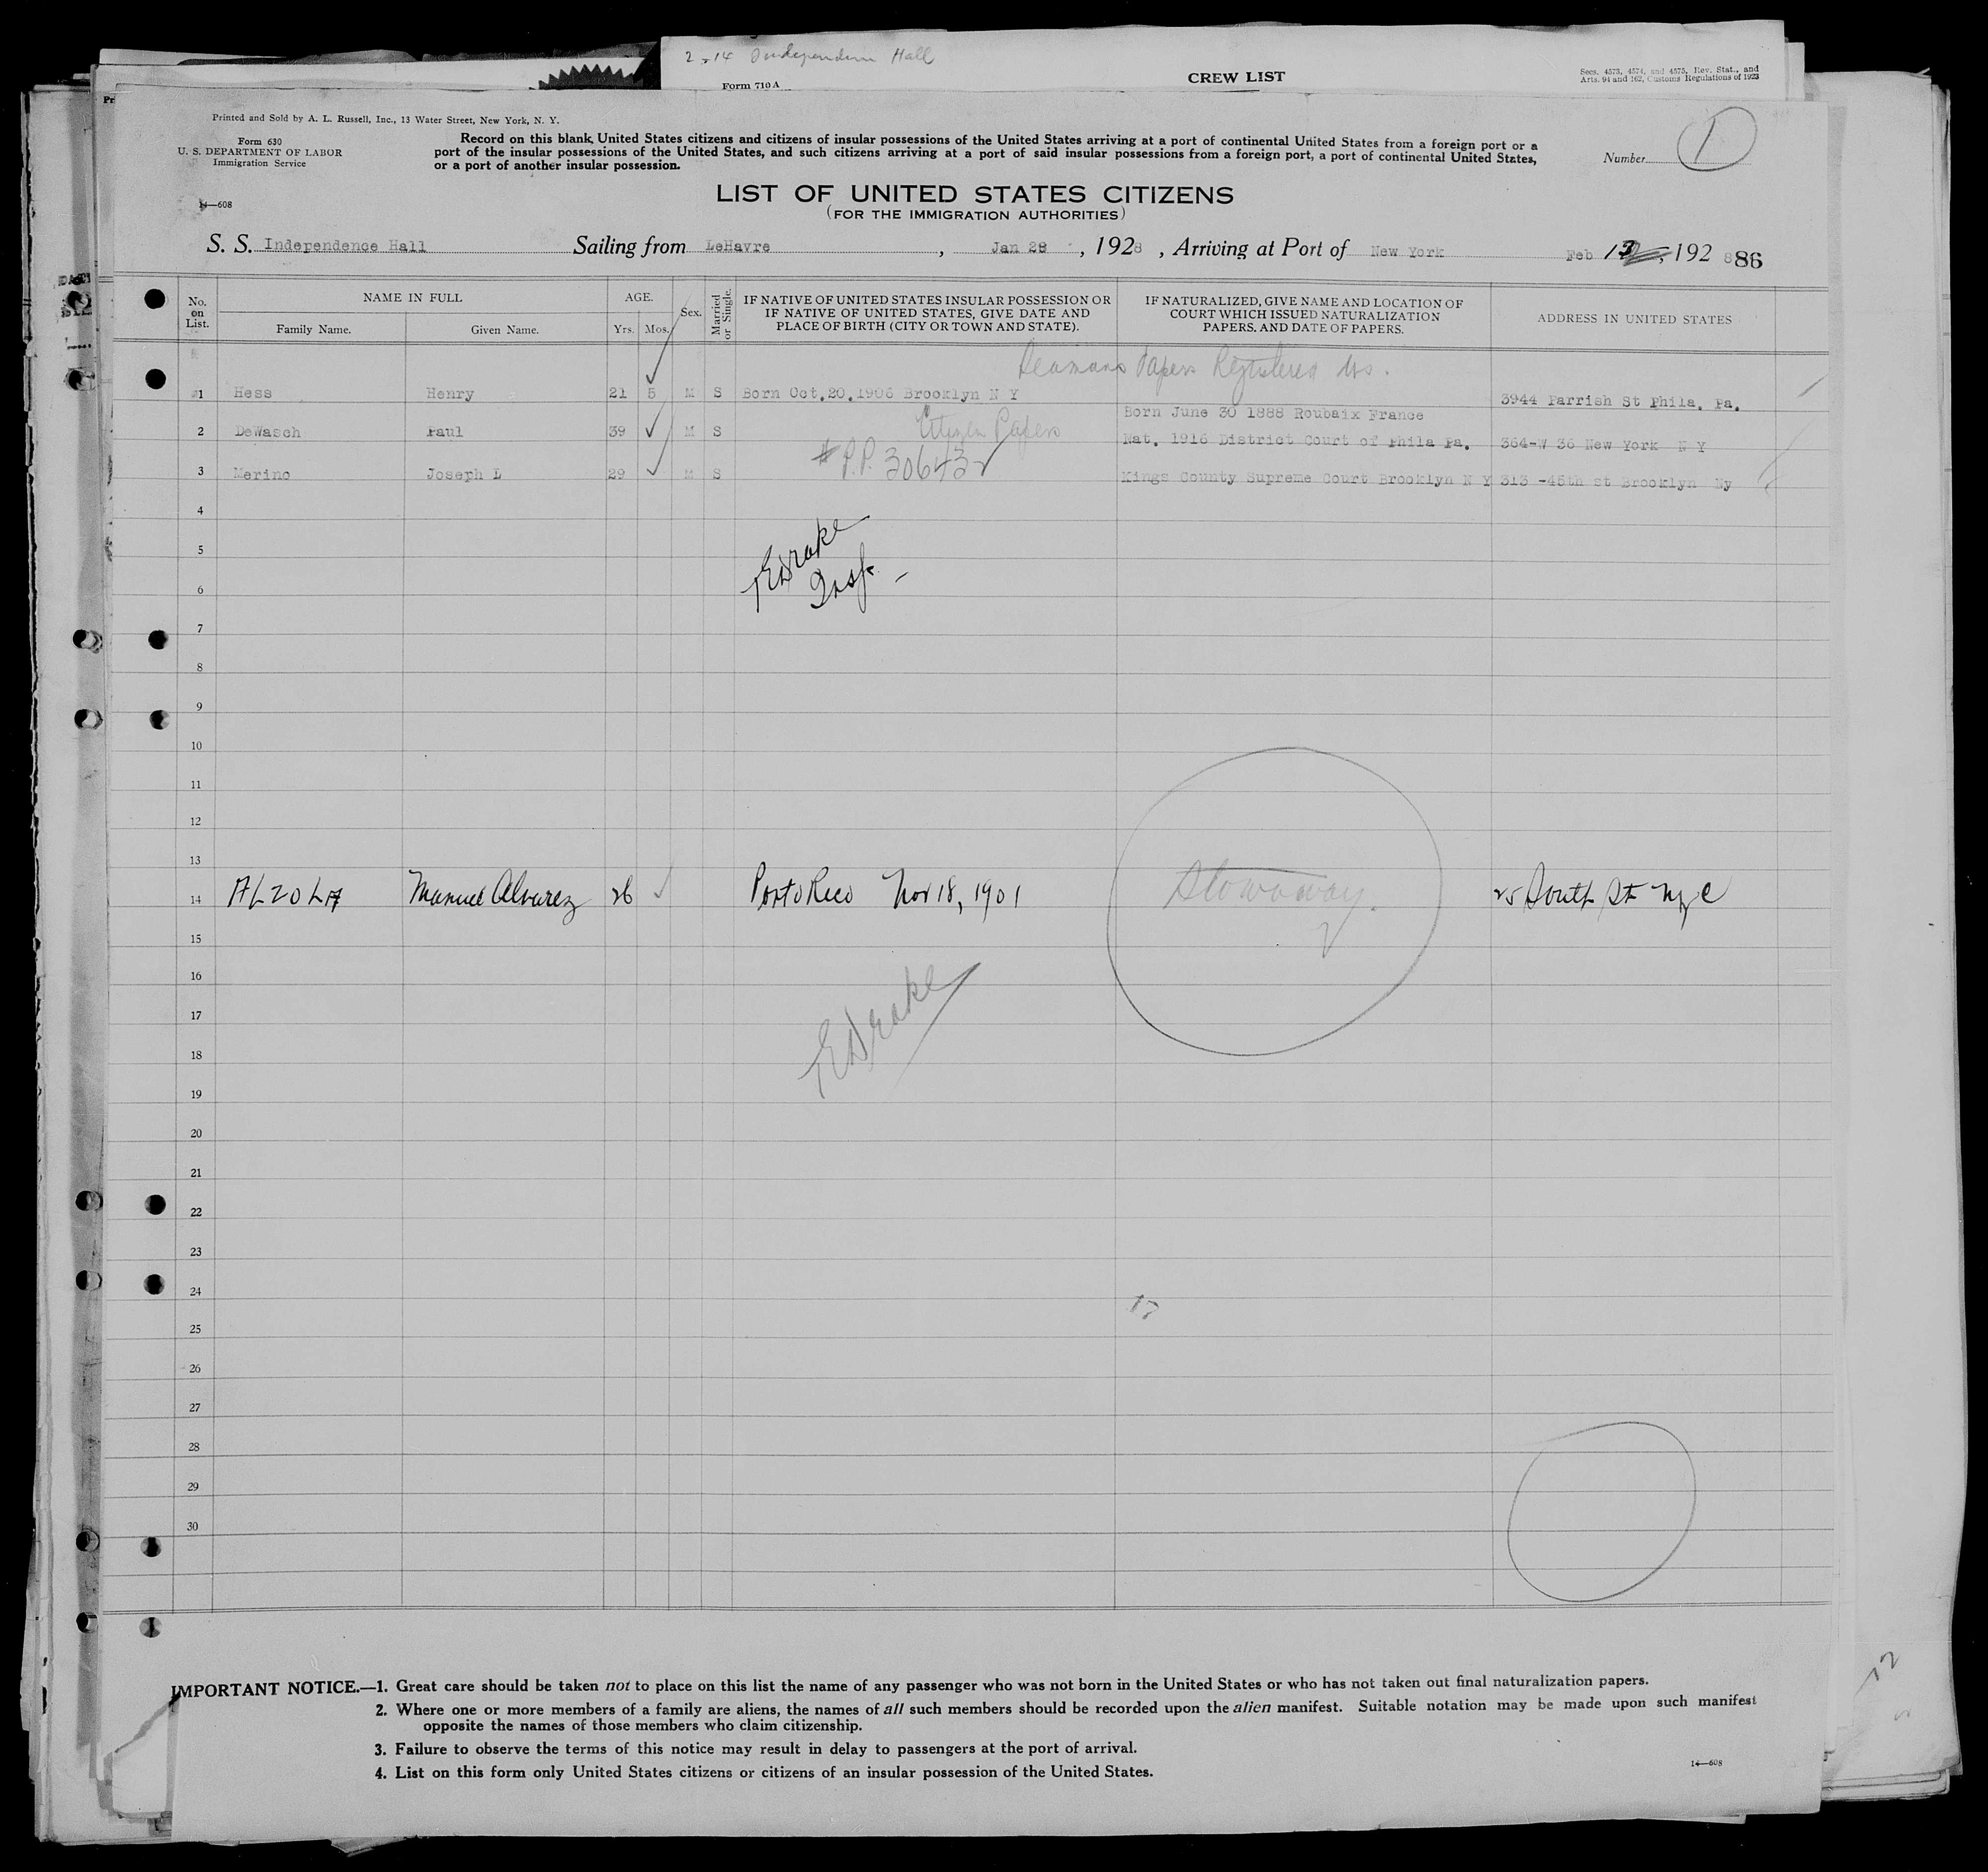 2-14 Independence Hall
Form 710A
CREW LIST
Secs. 4573, 4574, and 4575, Rev. Stat., and
Arts. 94 and 162, Customs Regulations of 1923
Printed and Sold by A. L. Russell, Inc., 13 Water Street, New York, N. Y.
Form 630
U. S. DEPARTMENT OF LABOR
Immigration Service
14—608
Record on this blank United States citizens and citizens of insular possessions of the United States arriving at a port of continental United States from a foreign port or a
port of the insular possessions of the United States, and such citizens arriving at a port of said insular possessions from a foreign port, a port of continental United States,
or a port of another insular possession.
Number 1
LIST OF UNITED STATES CITIZENS
(FOR THE IMMIGRATION AUTHORITIES)
S. S. Independence Hall Sailing from LeHavre, Jan 28, 1928, Arriving at Port of New York Feb 13, 1928 86
No. on List.
NAME IN FULL
Family Name. Given Name.
AGE.
Yrs. Mos.
Sex.
Married or Single.
IF NATIVE OF UNITED STATES INSULAR POSSESSION OR
IF NATIVE OF UNITED STATES, GIVE DATE AND
PLACE OF BIRTH (CITY OR TOWN AND STATE).
IF NATURALIZED, GIVE NAME AND LOCATION OF
COURT WHICH ISSUED NATURALIZATION
PAPERS, AND DATE OF PAPERS.
ADDRESS IN UNITED STATES
Seamans Papers Registered
1 Hess Henry 21 5 M S Born Oct.20.1906 Brooklyn N Y 3944 Parrish St Phila. Pa.
Citizen Papers Born June 30 1888 Roubaix France
2 DeWasch Paul 39 M S Nat. 1916 District Court of Phila Pa. 364-W 36 New York N Y
# P.P. 306432
3 Merino Joseph L 29 M S Kings County Supreme Court Brooklyn N Y 313 -45th St Brooklyn Ny
4
5
EDrake
Insp.
6
7
8
9
10
11
12
13
14 ALZOLA Manuel Alvarez 26 Porto Rico Nov 18, 1901 Stowaway. 25 South St NYC
15
16
17
EDrake
18
19
20
21
22
23
24
17
25
26
27
28
29
30
IMPORTANT NOTICE.—1. Great care should be taken not to place on this list the name of any passenger who was not born in the United States or who has not taken out final naturalization papers.
2. Where one or more members of a family are aliens, the names of all such members should be recorded upon the alien manifest. Suitable notation may be made upon such manifest
opposite the names of those members who claim citizenship.
3. Failure to observe the terms of this notice may result in delay to passengers at the port of arrival.
4. List on this form only United States citizens or citizens of an insular possession of the United States.
14—608
12